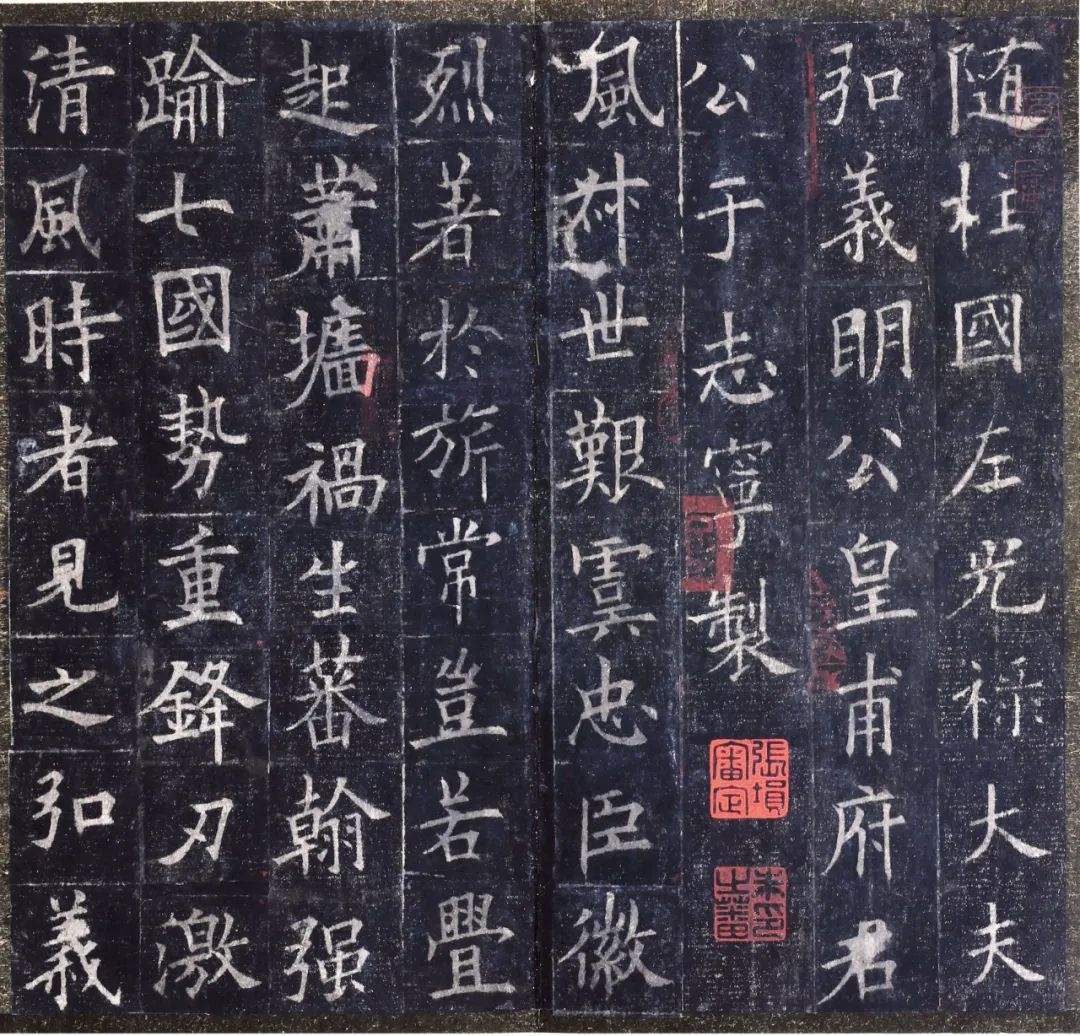 随柱國左光禄大夫
弘義明公皇甫府君
公于志寧製
張塤審定
朱之蕃印
風叔世艱虞忠臣徽
烈著於旂常豈若舋
起蕭墻禍生蕃翰强
踰七國勢重鋒刃激
清風時者見之弘義